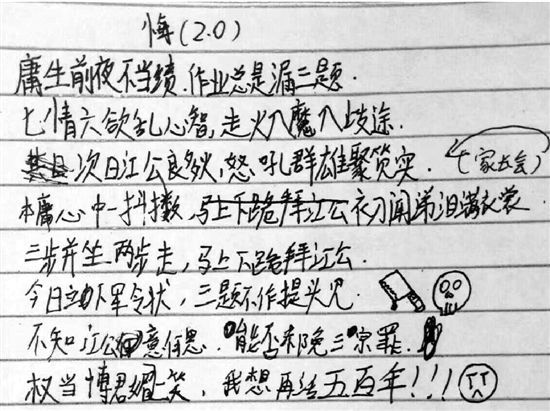 悔(2.0)
庸生前夜不当绩.作业总是漏三题.
七情六欲乱心智,走火入魔入歧途.
次日江公良多,怒吼群雄聚 (家长会)
本庸心中一抖擞,初闻涕泪满衣裳
三步并坐两步走,马上下跪拜江公.
今日立下军令状,三题不作提头见
不知江公意何思.能否都免三宗罪.
权当博君嫣一笑,我想再活五百年!!!